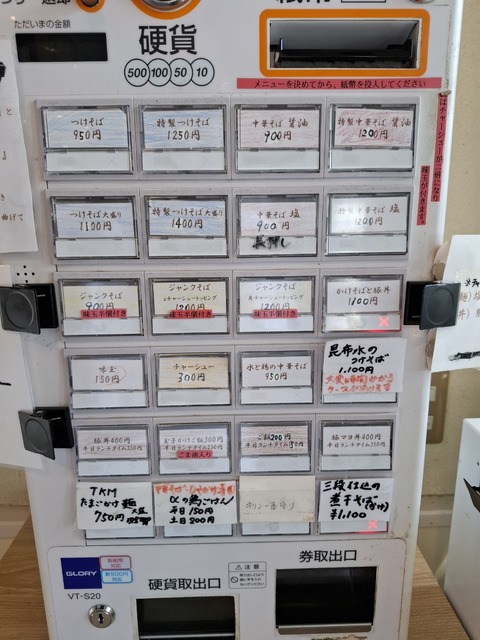 ただいまの金額
硬貨
500 100 50 10
メニューを決めてから、紙幣を投入してください
つけそば
950円
特製つけそば
1250円
中華そば 醤油
900円
特製中華そば 醤油
1200円
味玉が付きます。
つけそば大盛り
1100円
特製つけそば大盛り
1400円
中華そば 塩
900円
長押し
特製中華そば 塩
1200円
ジャンクそば
900円
味玉半個付き
ジャンクそば
チャーシュートッピング
1200円
味玉半個付き
ジャンクそば
チャーシュートッピング
1200円
味玉半個付き
かけそばと豚丼
1100円
味玉
150円
チャーシュー
300円
水と鶏の中華そば
950円
昆布水の
つけそば
1,100円
豚丼400円
平日ランチタイム350円
玉子かけご飯300円
平日ランチタイム250円
ごま油入り
ご飯200円
平日ランチタイム150円
豚マヨ丼400円
平日ランチタイム350円
TKM
たまごかけ麺
750円
の鶏ごはん
平日150円
土日200円
三段仕込の
煮干そば
¥1,100
GLORY
新紙幣対応
新500円対応
VT-S20
硬貨取出口
注意
券取出口